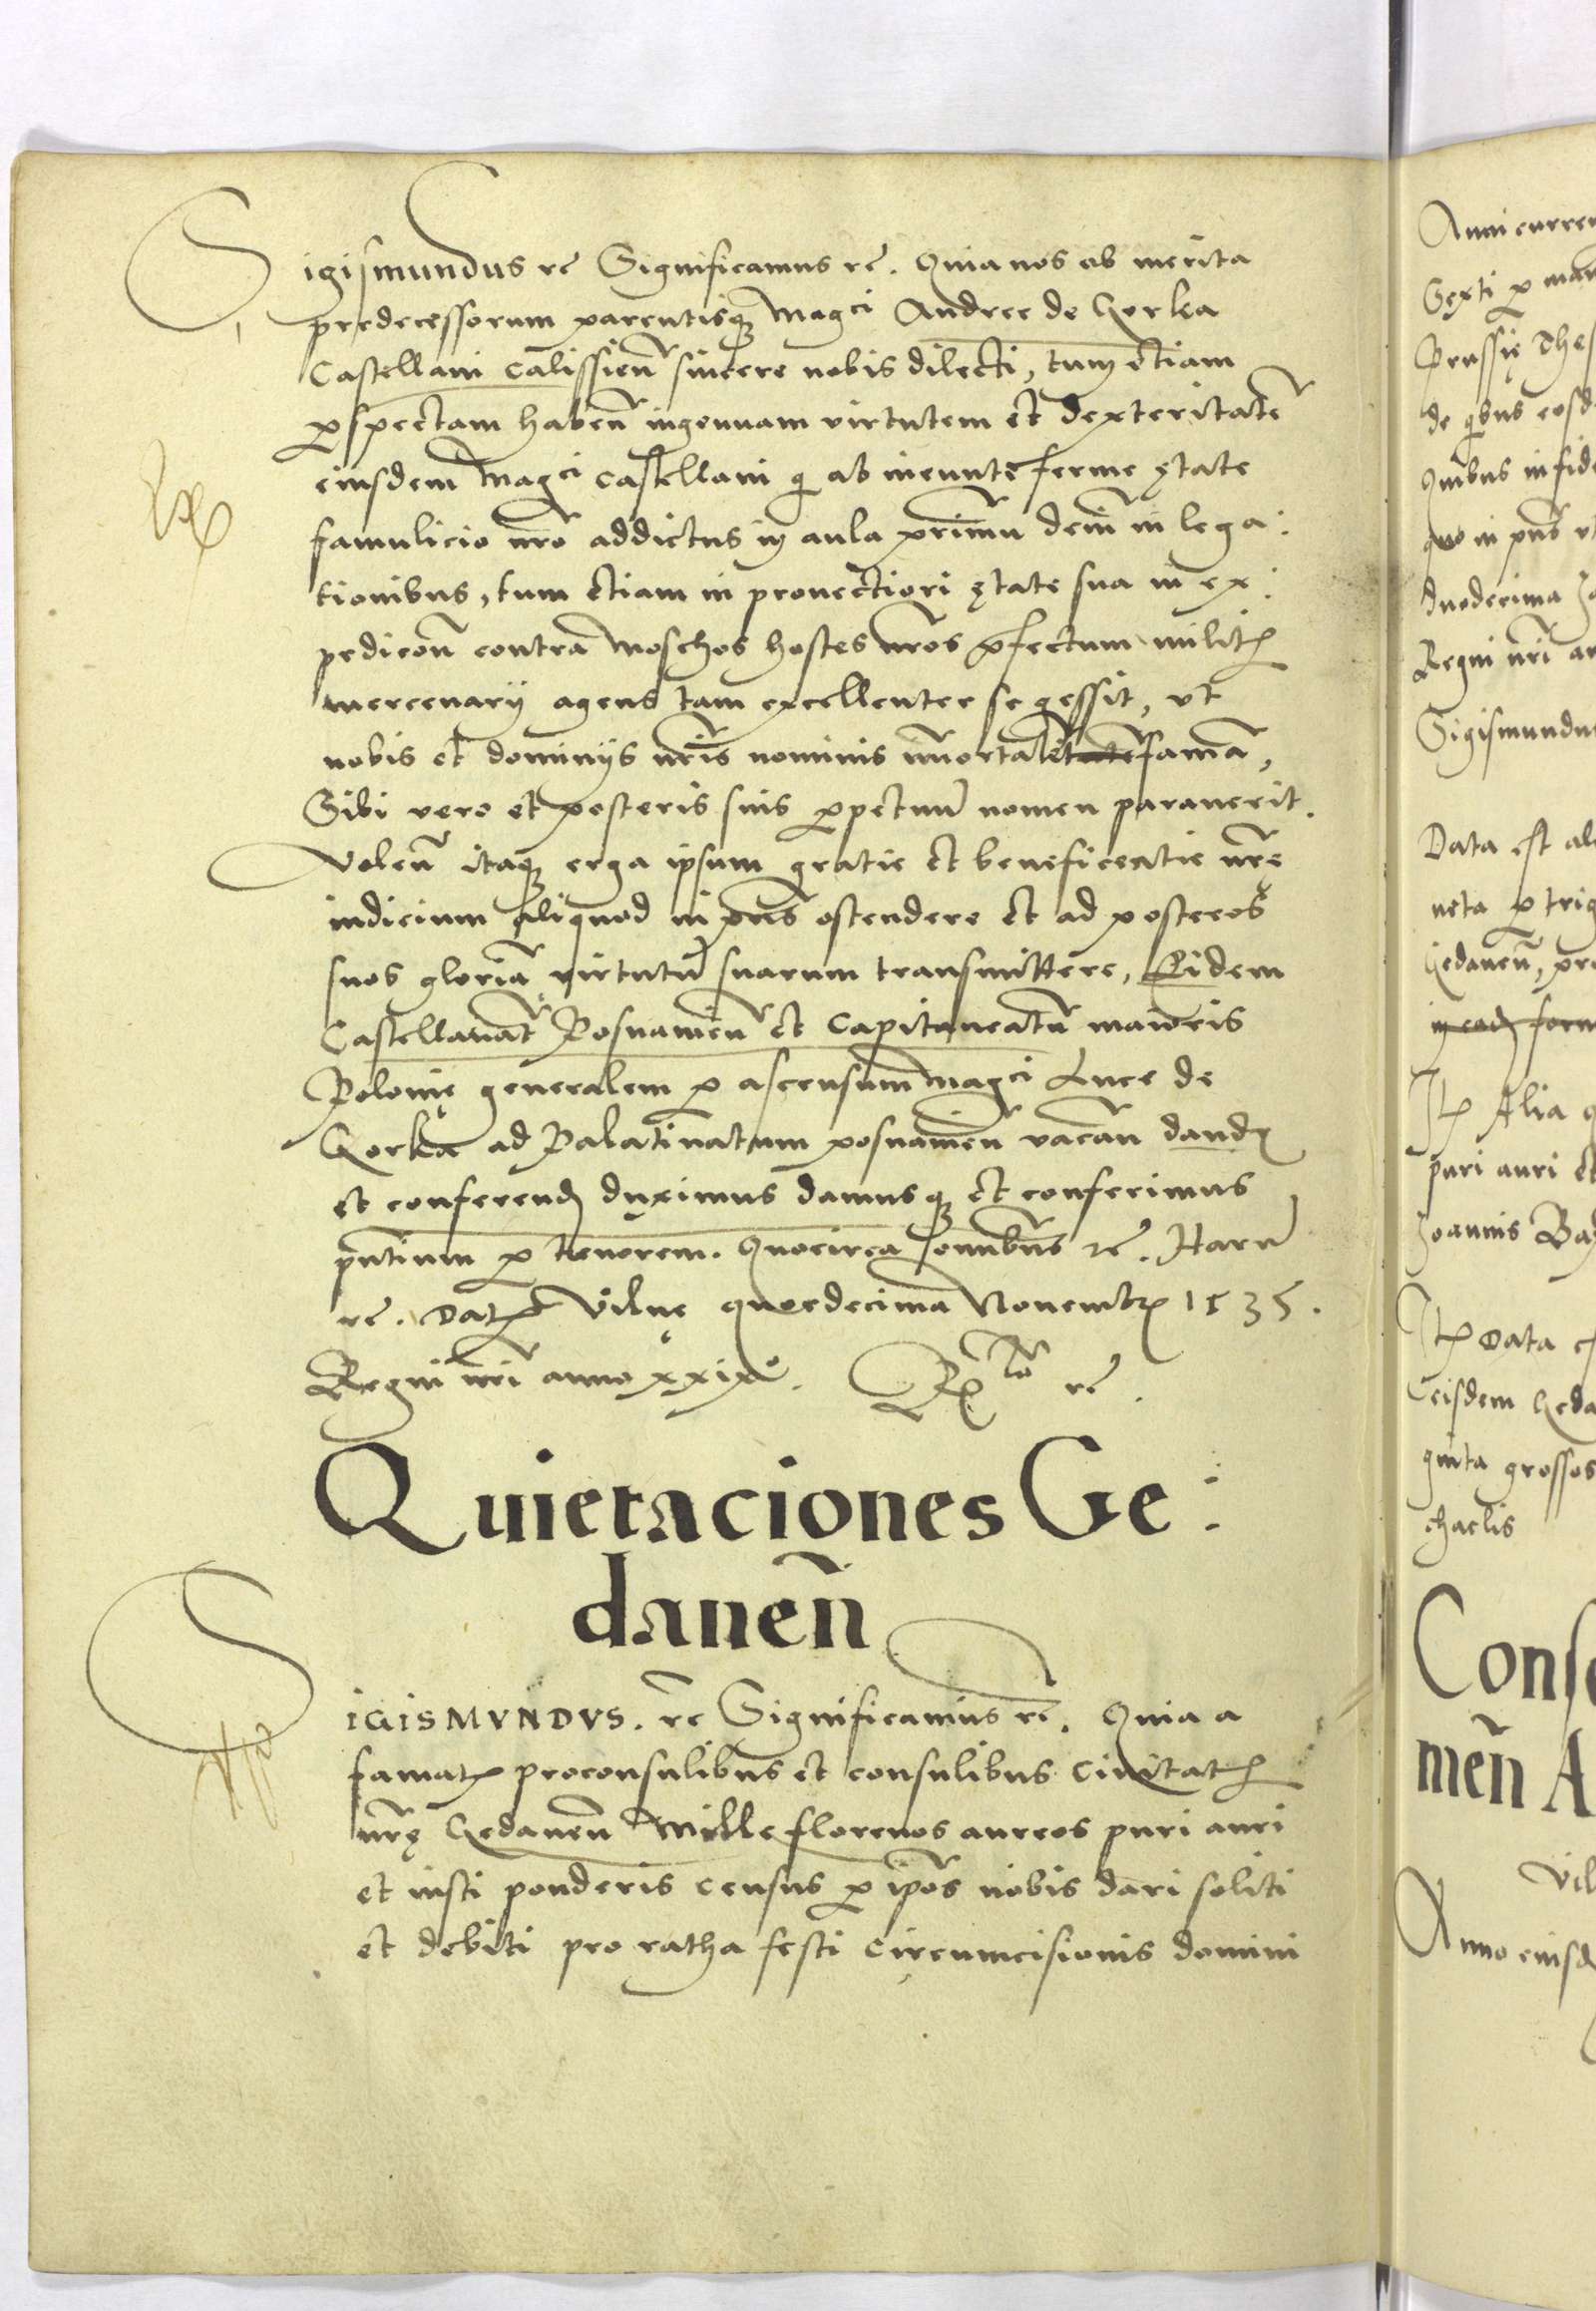 Sigismundus rc̃ Significamus rc̃. Quia nos ob merita
predecessorum parentisq₃ Magci Andree de Gorka
Castellani Calissieñ sincere nobis dilecti, tum etiam
ꝑspectam habeñ ingenuam virtutem et dexteritatẽ
eiusdem Magci Castellani qi ab ineunte ferme ętate
famulicio nrõ addictus in aula primũ deiñ in lega:
tionibus, tum etiam in provectiori ętate sua in ex:
pedicoñ contra Moschos hostes nrõs p̃fectum militꝭ
mercenarij agens tam excellenter se gessit, vt
nobis et dominijs nrĩs nominis im̃ortalẽ famã,
Sibi vero et posteris suis ꝑpetuũ nomen paraverit.
Voleñ itaq₃ erga ipsum gratie et beneficentie nrę̃
indicium aliquod in pñs ostendere et ad posteros
suos gloriã virtutũ suarum transmittere, Eidem
Castellanat̃ Posnanieñ et Capitaneatũ maioris
Polonię generalem ꝑ ascensum Magci Luce de
Gorka ad Palatinatum posnanieñ vacañ dandꝭ
et conferendꝭ duximus damusq₃ et conferimus
pñtium ꝑ tenorem. Quocirca omnibus rc̃. Harũ
rc̃. Datꝭ Vilnę quardecima Novembrꝭ 1535.
Regni nrĩ anno xxixº. Rꝭ lõ rc̃.
Quietaciones Ge:
daneñ
SIGISMVNDVS. rc̃ Significamus rc̃. Quia a
famatꝭ proconsulibus et consulibus Civitatꝭ
nrę̃ Gedaneñ Mille florenos aureos puri auri
et iusti ponderis census ꝑ ipõs nobis dari soliti
et debiti pro ratha festi Circumcisionis domini
Anni curren
Sexti ꝑ man
Prussię Thes
de qibus eosd
Quibus in fide
quo in pñs vt
duodecima
Regni nrĩ an
Sigismundu
Data est al
neta ꝑ trig
Gedaneñ, pr
in eadꝭ form
Itꝭ Alia q
puri auri et
Joannis Ba
Itꝭ Data e
eisdem Geda
ginta grossos
chaelis
Conse
meñ A
Vil
Anno eiusd